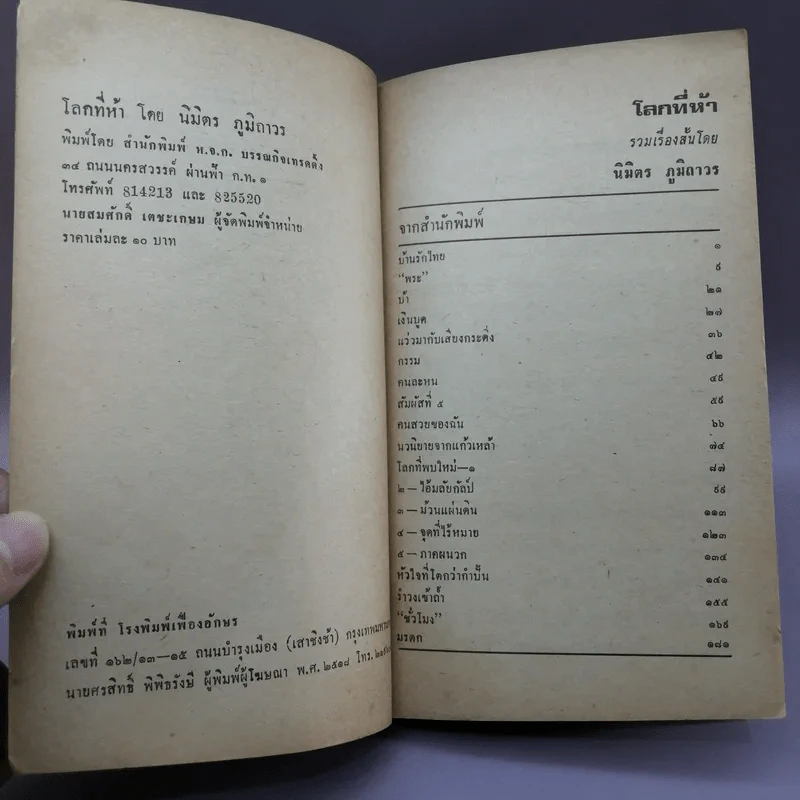 โลกที่ห้า โดย นิมิตร ภูมิถาวร
พิมพ์โดย สำนักพิมพ์ ห.จ.ก. บรรณกิจเทรดดิ้ง
๓๔ ถนนนครสวรรค์ ผ่านฟ้า ก.ท. ๑
โทรศัพท์ 814213 และ 825520
นายสมศักดิ์ เตชะเกษม ผู้จัดพิมพ์จำหน่าย
ราคาเล่มละ ๑๐ บาท
พิมพ์ที่ โรงพิมพ์เฟื่องอักษร
เลขที่ ๑๖๒/๑๓—๑๕ ถนนบำรุงเมือง (เสาชิงช้า)
นายศรสิทธิ์ พิพิธรังษี ผู้พิมพ์ผู้โฆษณา พ.ศ. ๒๕๑๘ โทร.
โลกที่ห้า
รวมเรื่องสั้นโดย
นิมิตร ภูมิถาวร
จากสำนักพิมพ์
บ้านรักไทย ๑
“พระ” ๙
บ้า ๒๑
เงินบูด ๒๗
แว่วมากับเสียงกระดิ่ง ๓๖
กรรม ๔๒
คนละหน ๔๙
สัมผัสที่ ๕ ๕๙
คนสวยของฉัน ๖๖
นวนิยายจากแก้วเหล้า ๗๔
โลกที่พบใหม่—๑ ๘๗
๒ — ไอ้มลัยกัลป์ ๙๙
๓ — ม้วนแผ่นดิน ๑๑๓
๔ — จุดที่ไร้หมาย ๑๒๓
๕ — ภาคผนวก ๑๓๔
หัวใจที่โตกว่ากำปั้น ๑๔๑
รำวงเข้าถ้ำ ๑๕๕
“ชั่วโมง” ๑๖๙
มรดก ๑๘๑